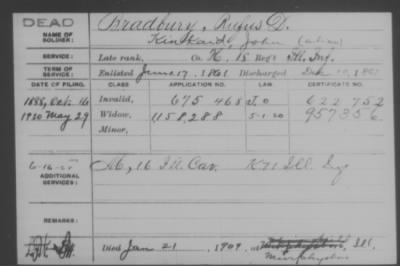 DEAD Bradbury, Rufus D.
NAME OF SOLDIER: Kinkaid, John (alias)
SERVICE: Late rank, Co. K, 18 Reg't Ill. Inf.
TERM OF SERVICE: Enlisted June 17, 1861 Discharged Dec
DATE OF FILING. CLASS. APPLICATION NO. LAW. CERTIFICATE NO.
1888, Oct 16 Invalid, 675 468 622 752
1920 May 29 Widow, 1158,288 5-1-20 957356
Minor,
ADDITIONAL SERVICES: 16 Ill. Cav. K 71 Ill. Inf
REMARKS:
Died Jan 21, 1909, at Ill.
Murphysboro